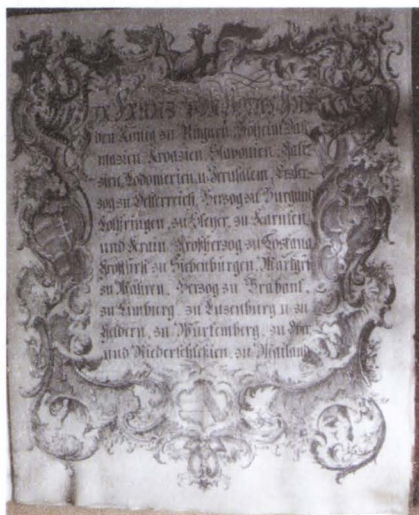 den König zu Ungarn, Böheim, Dal-
mazien, Kroazien, Slavonien, Gali-
zien, Lodomerien, u. Jerusalem, Erzher-
zog zu Oesterreich, Herzog zu Burgund
Lothringen, zu Steyer, zu Kärnten,
und Krain, Großherzog zu Toskana
Großfürst zu Siebenbürgen, Markgr
zu Mähren, Herzog zu Brabant,
zu Limburg, zu Luzenburg u. zu
Geldern, zu Würtemberg, zu Ober
und Niederschlesien, zu Mailand